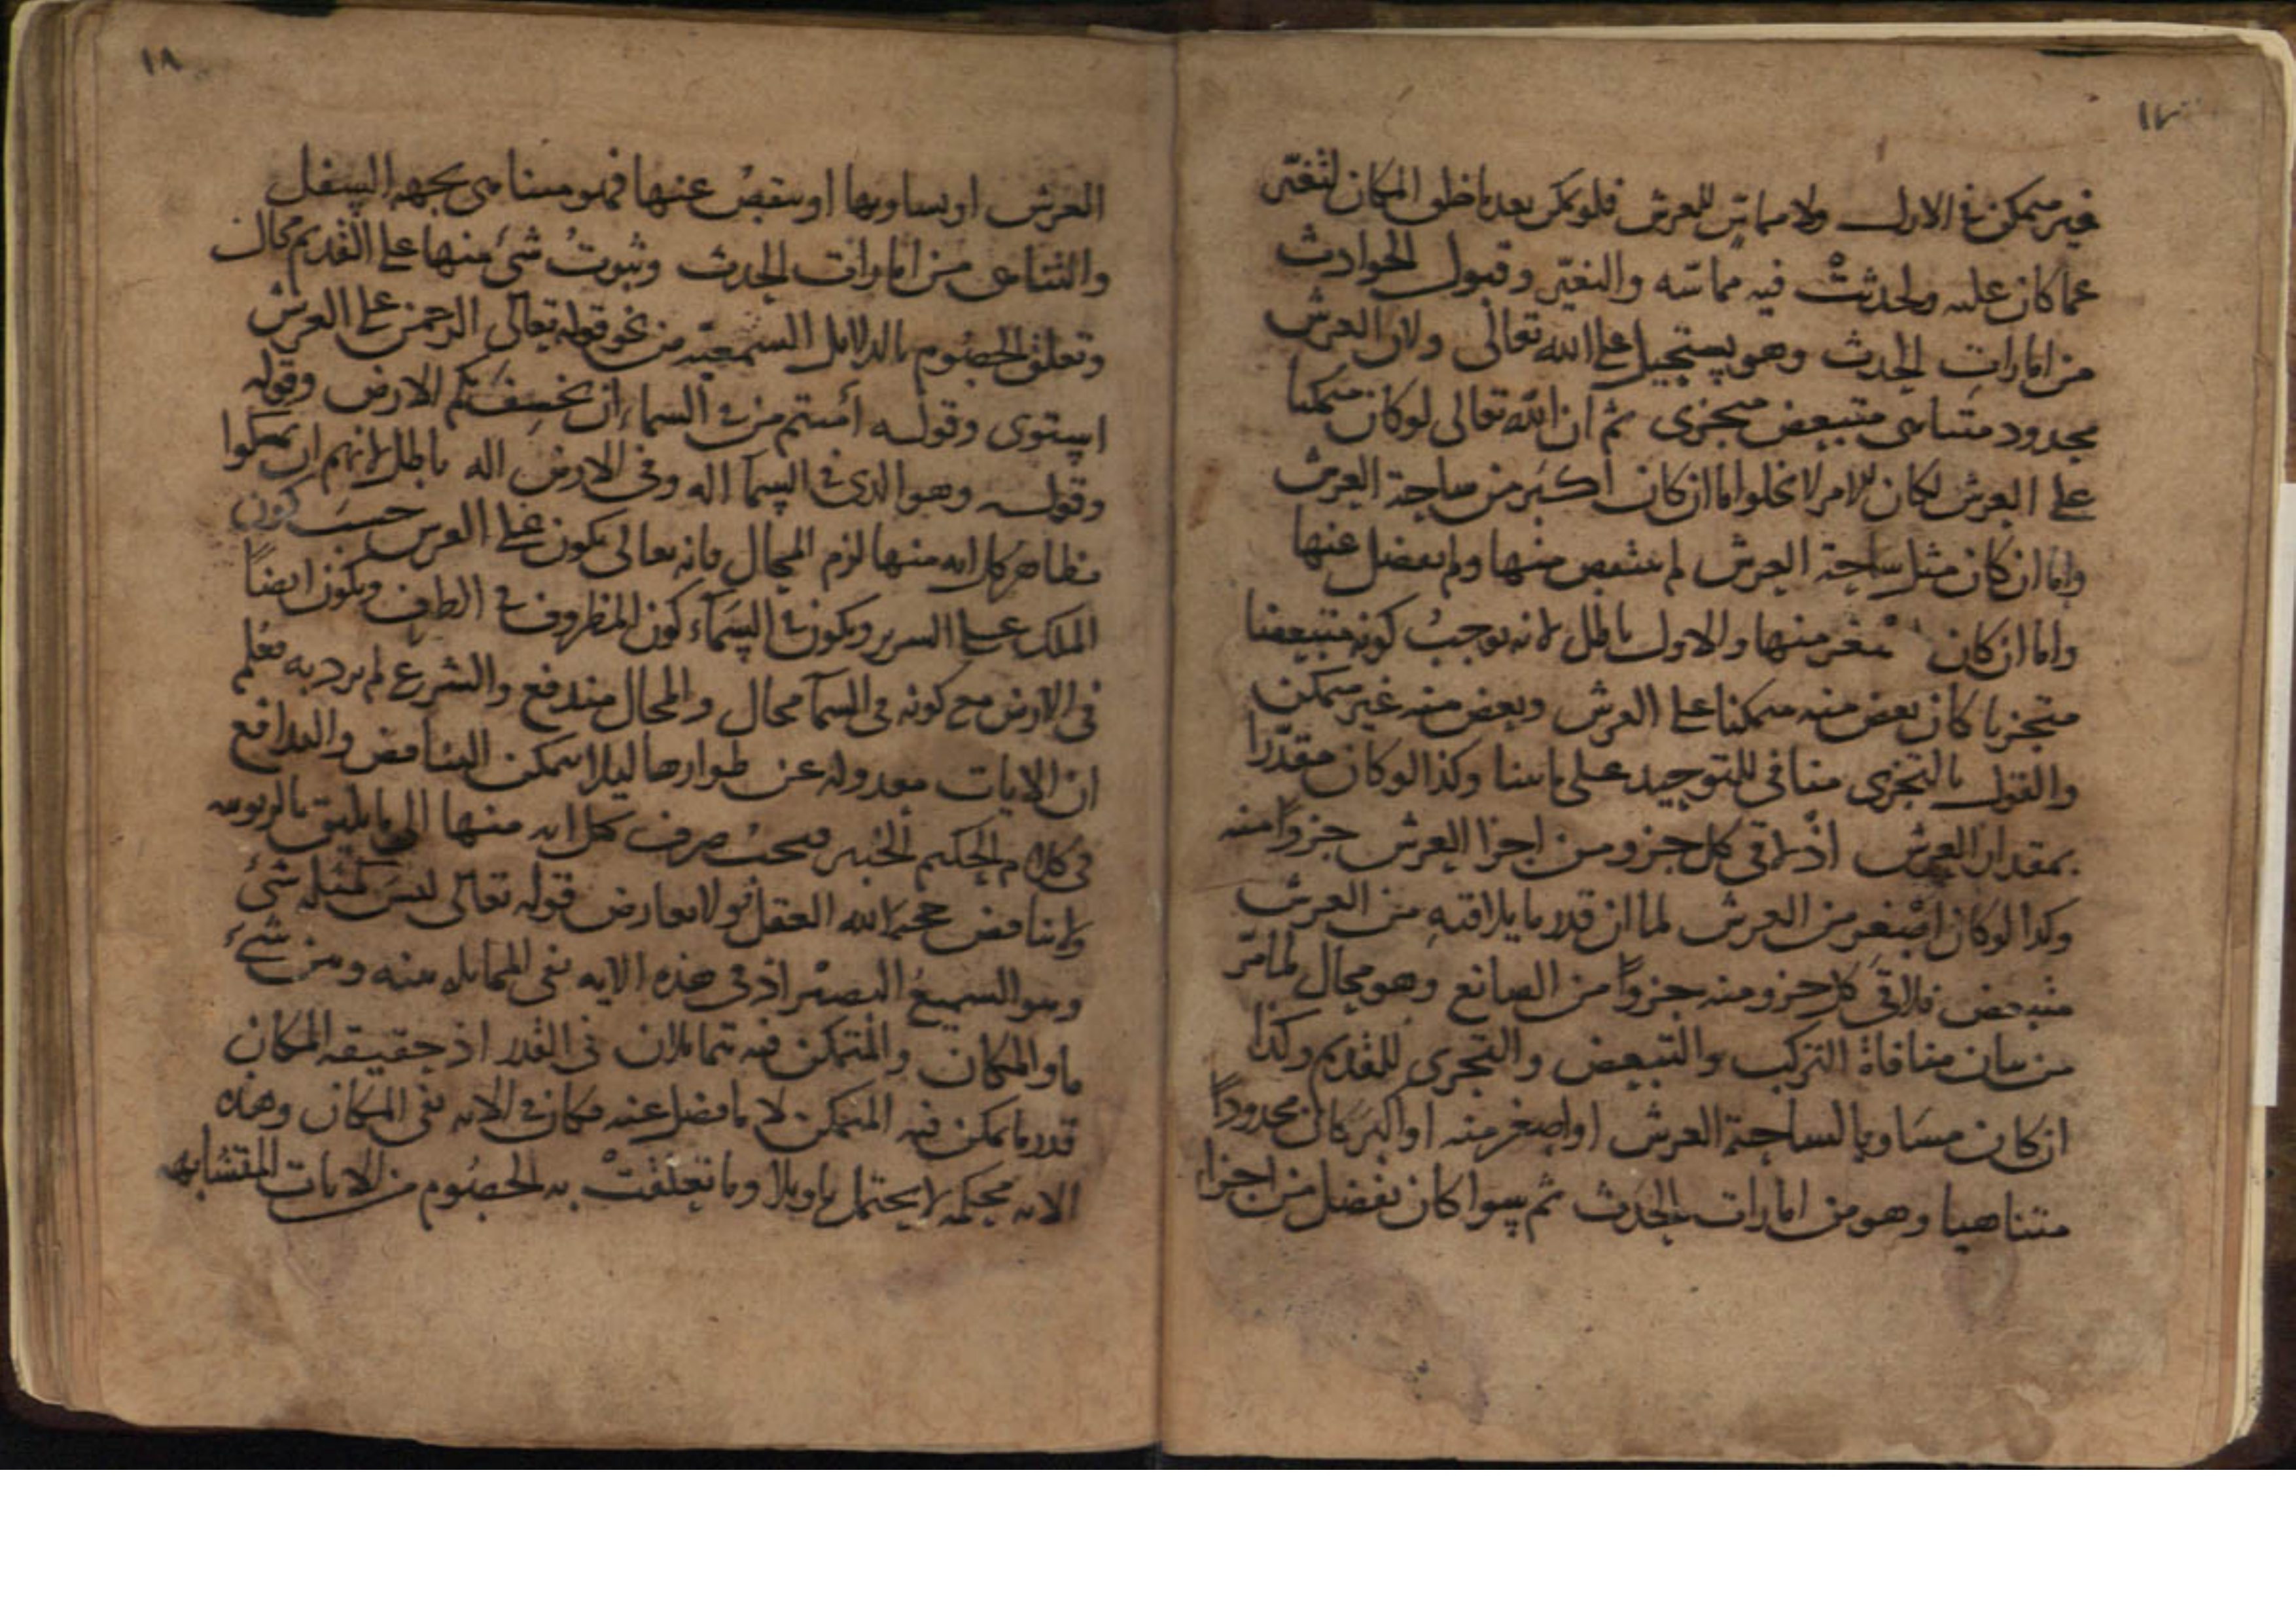 ١٧
غير متمكن في الازل ولا مماس للعرش فلو تمكن بعد ما خلق المكان لتغير
عما كان عليه ولحدثت فيه مماسة والتغير وقبول الحوادث
من امارات الحدث وهو يستحيل على الله تعالى ولان العرش
محدود متناهى متبعض متجزى ثم ان الله تعالى لو كان متمكنا
على العرش لكان الامر لا يخلوا اما ان كان اكبر من ساحة العرش
واما ان كان مثل ساحة العرش لم ينتقص منها ولم يفضل عنها
واما ان كان اصغر منها والاول باطل لانه يوجب كونه متبعضا
متجزيا كان بعض منه متمكنا على العرش وبعض منه غير متمكن
والقول بالتجزى منافى للتوحيد على ما بينا وكذا لو كان مقدرا
بمقدار العرش اذ لاقى كل جزو من اجزا العرش جزوا منه
وكذا لو كان اصغر من العرش لما ان قدر ما يلاقيه من العرش
متبعض فلاقى كل جزو منه جزوا من الصانع وهو محال لما مر
من بيان منافاة التركب والتبعض والتجزى للقديم وكذا
ان كان مساويا لساحة العرش او اصغر منه او اكبر كان محدودا
متناهيا وهو من امارات الحدث ثم سوا كان يفضل من اجزاء
١٨
العرش او يساويها او ينقص عنها فهو متناهى بجهة السفل
والتناهى من امارات الحدث وثبوت شئ منها على القديم محال
وتعلق الخصوم بالدلايل السمعية من نحو قوله تعالى الرحمن على العرش
استوى وقوله أمنتم من في السماء ان يخسف بكم الارض وقوله
وقوله وهو الذى فى السمآ اله وفى الارض اله باطل لانهم ان تمسكوا
بظاهر كل اية منها لزم المحال فانه تعالى يكون على العرش حسب كون
الملك على السرير ويكون في السمآء كون المظروف في الظرف ويكون ايضا
فى الارض مع كونه فى السمآ محال والمحال مندفع والشرع لم يرد به فعلم
ان الايات معدولة عن ظواهرها ليلا يتمكن التناقض والتدافع
فى كلام الحكيم الخبير فيجب صرف كل اية منها الى ما يليق بالربوبية
ولا يناقض حجج الله العقل ولا يعارض قوله تعالى ليس كمثله شئ
وهو السميع البصير اذ فى هذه الاية نفى المماثلة بينه وبين شئ
ما والمكان والمتمكن فيه تماثلان فى القدر اذ حقيقة المكان
قدر ما يمكن فيه المتمكن لا ما فضل عنه فكان في الاية نفى المكان وهذه
الاية محكمة لا يحتمل تاويلا وما تعلقت به الخصوم من الايات المتشابهة